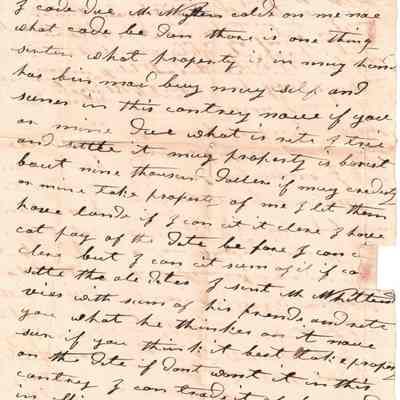 I code due Mr Whytten caled on me nae
what code be don thare is one thing
sirten what property is in muy han
has bin mad buy muy self and
sunes in this contrey naue if you
or mine Due what is rite I
and settle it muy property is
bout nine thousand Dollers if muy
or mine take property of me I let them
have lands if I can cit it clere I have
cot pay of the Dete be fore I can c
clere but I can cit sum of it if co
sitle the ole detes I sent Mr Whitten
vies with sum of his frends and rite
you what he thinkes on it naue
sun if you think it best take propert
on the Dete if dont want it in this
contrey I can trade it
in